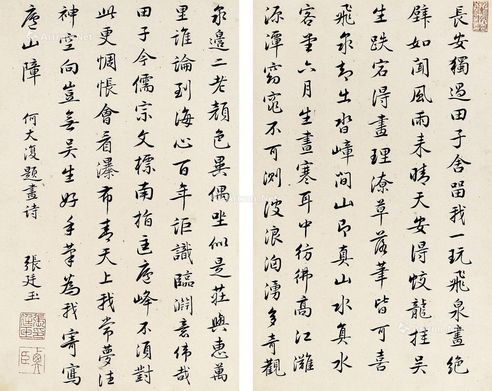 長安獨過田子舍留我一玩飛泉畫絕
壁如聞風雨來晴天安得蛟龍挂吳
生跌宕得畫理潦草落筆皆可喜
飛泉却出沓嶂間山即真山水真水
客堂六月生晝寒耳中彷彿高江灘
源潭窈窕不可測波浪洶湧多奇觀
泉邊二老顏色異偶坐似是莊與惠萬
里誰論到海心百年詎識臨淵意偉哉
田子今儒宗文標南指匡廬峰不須對
此更惆悵會看瀑布青天上我常夢往
神空向豈無吳生好手筆為我寄寫
廬山障 何大復題畫詩 張廷玉